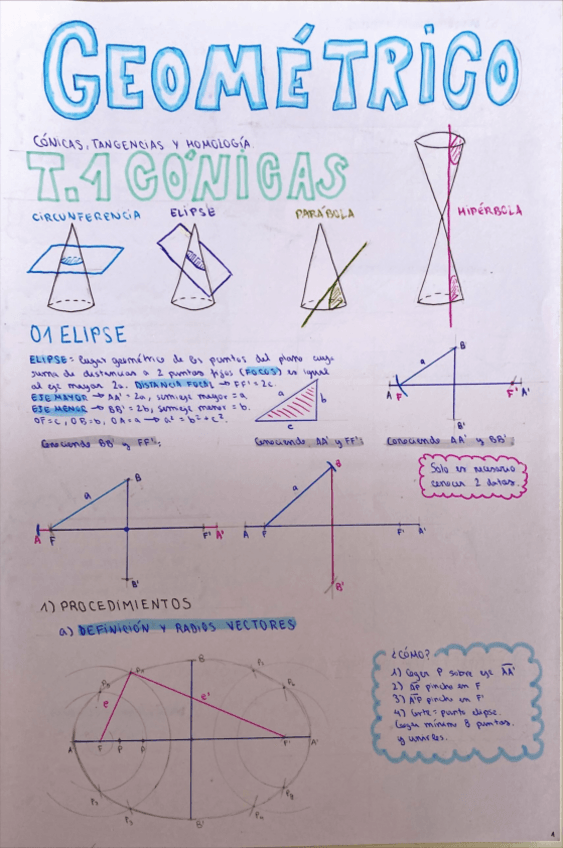 GEOMÉTRICO
CÓNICAS, TANGENCIAS Y HOMOLOGÍA.
T.1 CÓNICAS
CIRCUNFERENCIA
ELIPSE
PARÁBOLA
HIPÉRBOLA
01 ELIPSE
ELIPSE = Lugar geométrico de los puntos del plano cuya
suma de distancias a 2 puntos fijos (FOCOS) es igual
al eje mayor 2a. DISTANCIA FOCAL → FF' = 2c.
EJE MAYOR → AA' = 2a, semieje mayor = a.
EJE MENOR → BB' = 2b, semieje menor = b.
OF = c, OB = b, OA = a → a² = b² + c².
a
b
c
a
B
A
F
F'
A'
B'
Conociendo BB' y FF':
Conociendo AA' y FF':
Conociendo AA' y BB':
Sólo es necesario
conocer 2 datos.
a
B
A
F
F'
A'
B'
a
B
A
F
F'
A'
B'
1) PROCEDIMIENTOS
a) DEFINICIÓN Y RADIOS VECTORES
B
e
e'
A
F
P
F'
A'
B'
¿CÓMO?
1) Coger P sobre eje AA'
2) AP pincho en F
3) A'P pincho en F'
4) Corte = punto elipse.
Coger mínimo 8 puntos.
y unirlos.